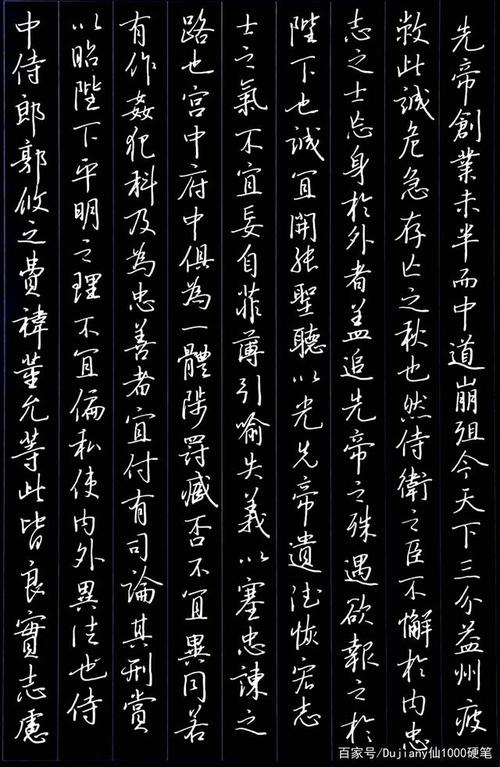 先帝創業未半而中道崩殂今天下三分益州疲
敝此誠危急存亡之秋也然侍衛之臣不懈於內忠
志之士忘身於外者蓋追先帝之殊遇欲報之於
陛下也誠宜開張聖聽以光先帝遺德恢宏志
士之氣不宜妄自菲薄引喻失義以塞忠諫之
路也宮中府中俱為一體陟罰臧否不宜異同若
有作姦犯科及為忠善者宜付有司論其刑賞
以昭陛下平明之理不宜偏私使內外異法也侍
中侍郎郭攸之費禕董允等此皆良實志慮
百家号/Dujiany仙1000硬笔